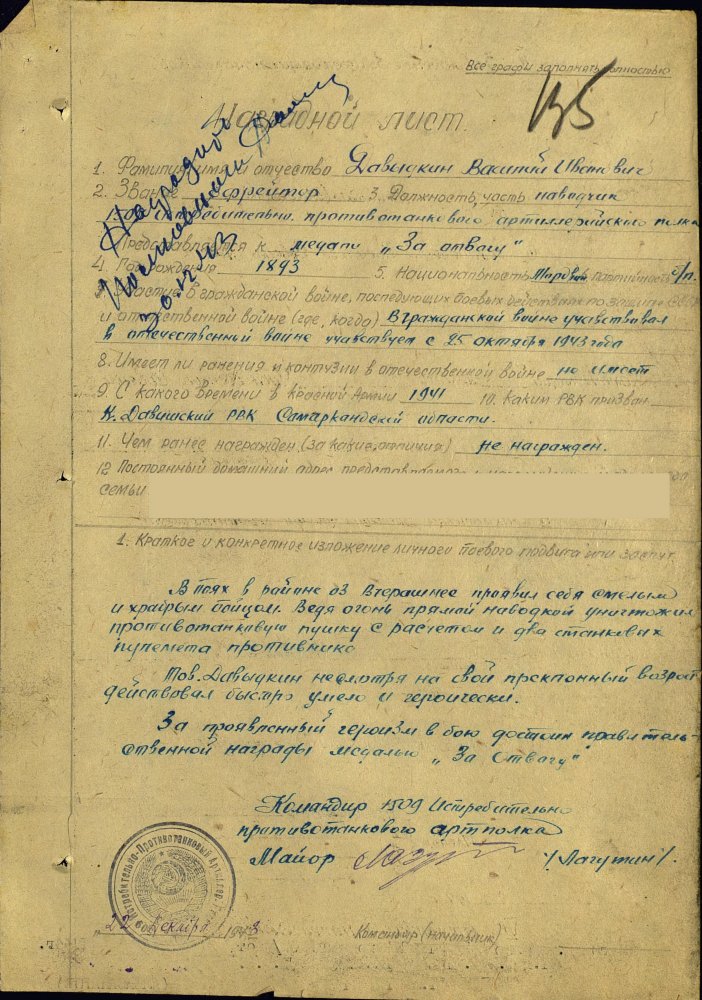 Все графы заполнять полностью
Наградной лист.
195
Награжден
Постановлением
30.12.43
1. Фамилия, имя и отчество Давыдкин Василий Иванович
2. Звание ефрейтор 3. Должность, часть наводчик
истребительн. противотанкового артиллерийского полка
Представляется к медали „За отвагу"
4. Год рождения 1893 5. Национальность 6. партийность б/п.
7. Участие в гражданской войне, последующих боевых действиях по защите СССР
и отечественной войне (где, когда) В гражданской войне участвовал
в отечественный войне участвует с 25 октября 1943 года
8. Имеет ли ранения и контузии в отечественной войне не имеет
9. С какого времени в Красной Армии 1941 10. Каким РВК призван
РВК Самаркандской области.
11. Чем ранее награжден (за какие отличия) не награжден.
12 Постоянный домашний адрес представляемого
семьи
1. Краткое и конкретное изложение личного боевого подвига или заслуг
В боях в районе оз Вчерашнее проявил себя смелым
и храбрым бойцом. Ведя огонь прямой наводкой уничтожил
противотанковую пушку с расчетом и два станковых
пулемета противника
Тов. Давыдкин несмотря на свой преклонный возраст
действовал быстро умело и героически.
За проявленный героизм в бою достоин правитель-
ственной награды медалью „За отвагу"
Командир 1509 Истребительно
противотанкового артполка
Майор /Лагутин/.
Истребительно-Противотанковый Артиллер
„22" декабря 1943
Командир (начальник)